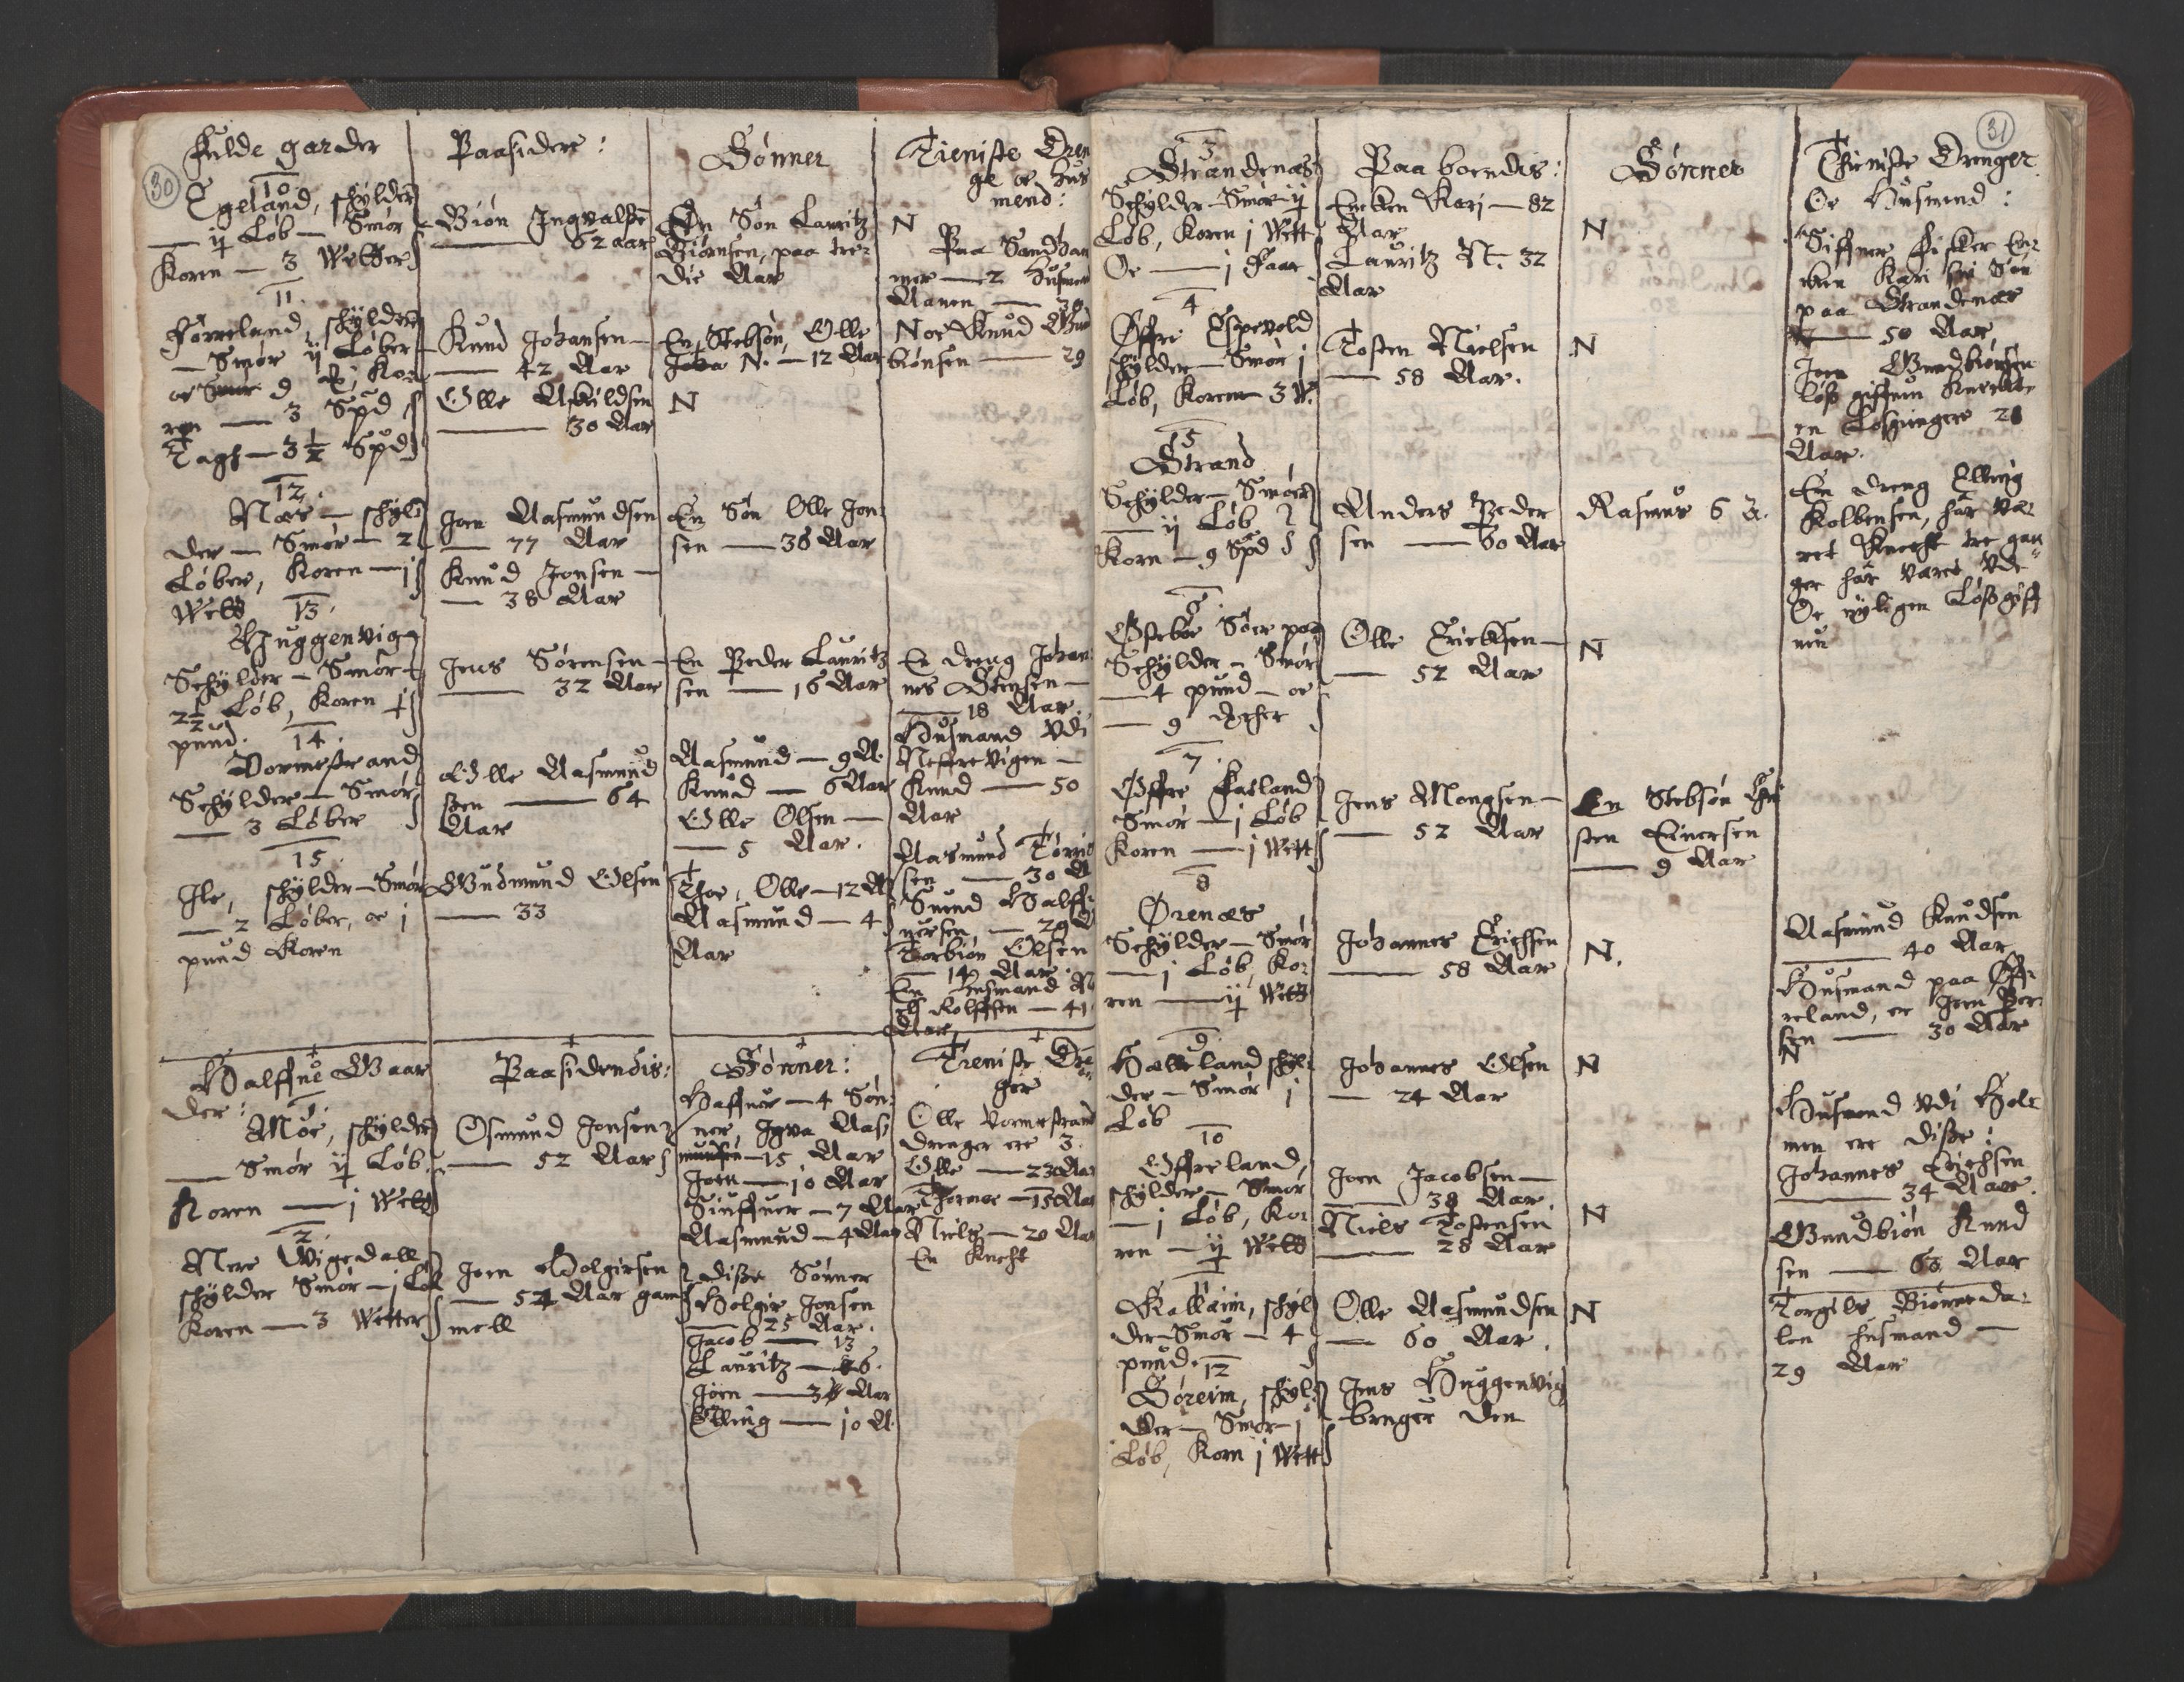 30
Fulde garder
10.
Egeland, schylder
— ij Løb — Smør
Koren — 3 Wetter
11.
Førreland, schylder
— Smør ij Løber
oc Smør 9 Ko
ren — 3 Spd
Tagh — 3½ Spd
12.
Næs — schyl
der — Smør — 2
Løber, Koren — j
Wett
13.
Huggenvig
Schylder — Smør
2½ Løb, Koren j
pund.
14.
Vormestrand
Schylder — Smør
— 3 Løber
15.
Ile, schylder — Smør
— 2 Løber, oc j
pund Koren
Paasidere:
Biøn Ingvalse
— 62 aar
Knud Johansen —
— 42 Aar
Olle Askildsen
— 30 Aar
Joen Aasmundsen
— 77 Aar
Knud Jonsen —
— 38 Aar
Jens Sørensen —
— 32 Aar
Olle Aasmund
sen — 64
Aar
Gudmund Olsen
— 33
Sønner
En Søn Lauritz
Biørnsen, paa tre-
die Aar
En Stebsøn, Olle
N. — 12 Aar
N
En Søn Olle Jon
sen — 38 Aar
En Peder Lauritz
sen — 16 Aar
Aasmund — 9 A.
Knud — 6 Aar
Olle Olsen —
— 5 Aar.
Thoe, Olle — 12 A
Aasmund — 4
Aar
Tieniste Dren
ge oc Hus
mend:
N
Paa Sandham
mer — 2 Husmen
Aanen — 30
Noe Knud Gud
biønsen — 29
En dreng Johan
nes Stensen —
— 18 Aar.
Husmand vdi
Neffrevigen —
Knud — 50
Aar
Aasmund Tørris
sen — 30 A
Suend Halff-
uorsen — 29 A
Torbiøn Olsen
— 14 Aar.
En Husmand
Rolffsen — 41
Aar
Halffue Gaar
der:
1.
Moe, schylder
— Smør ij Løb.
Koren — j Wett
2.
Nere Vigedall
schylder Smør — j Løb
Koren — 3 Wetter
Paasidendis:
Osmund Jonsen
— 52 Aar
Joen Holgiersen
— 54 Aar gam
mell
Sønner:
Haffuer — 4 Søn-
ner, Aas
mundsen — 15 Aar
Joen — 10 Aar
Siuffuer — 7 Aar
Aasmund — 4 Aar
disse Sønner
Holgier Jonsen
— 25 Aar.
Jacob — 13
Lauritz — 6.
Joen — 3 Aar
Elling — 10 A.
Tieniste Dre
ger
Olle Vormestrand
drenger ere 3.
Olle — 23 Aar
Thormoe — 15 Aar
Niels — 20 Aar
En Knecht
31
3
Strandenæs
Schylder — Smør ij
Løb, Koren j Wett
Oc — j Faar
4
Øffre Espevold
schylder — Smør j
Løb, Koren — 3 W.
5
Strand
Schylder — Smør
— ij Løb
Korn — 9 Spd
6.
Østebøe Søer paa
Schylder — Smør
— 4 pund — oc
— 9
7
Øffre Fatland
Smør — j Løb
Koren — j Wett
8
Ørenæs
Schylder — Smør
— j Løb, Ko-
ren — ij Wett
9
Helleland schyl
der — Smør j
Løb
10
Øffreland,
schylder — Smør
— j Løb, Ko-
ren — ij Wett
11
Kallaim, schyl
der — Smør — 4
pund.
12
Søreim, schyl
der — Smør — j
Løb, Korn j Wett
Paa boendis:
Encken Kari — 82
Aar
Lauritz N. 32
Aar
Tosten Nielsen
— 58 Aar.
Anders Peder
sen — 60 Aar
Olle Ericksen —
— 52 Aar
Jens Mongsen —
— 52 Aar
Johannes Erichsen
— 58 Aar
Johannes Olsen
— 24 Aar
Joen Jacobsen —
— 38 Aar
Niels Tostensen
— 28 Aar
Olle Aasmundsen
— 60 Aar.
Jens Huggenvig
bruger den
Sønner
N
N
Rasmus 6 A.
N
En Stebsøn
sten Einersen
— 9 Aar
N.
N
N
N
Thieniste Drenger
Oc Husmend:
Siffuer Fisker En-
cken Kari hej Søn
paa Strandenæs
— 50 Aar
Joen Gundbiønsen
løss giffuen Knecht
en Løsinger 28
Aar.
En dreng Elling
Kolbensen, har væ-
ret Knecht tre gan
ger har været vde
Oc nyligen Løsgiff
uen
Aasmund Knudsen
— 40 Aar
Husmand paa Øff-
reland, er Joen Per-
sen — 30 Aar
N
Husmend vdi Hol-
men ere disse:
Johannes Erichsen
— 34 Aar
Gundbiøn Knud
sen — 63 Aar
Torgils Biønneda-
len Husmand —
29 Aar